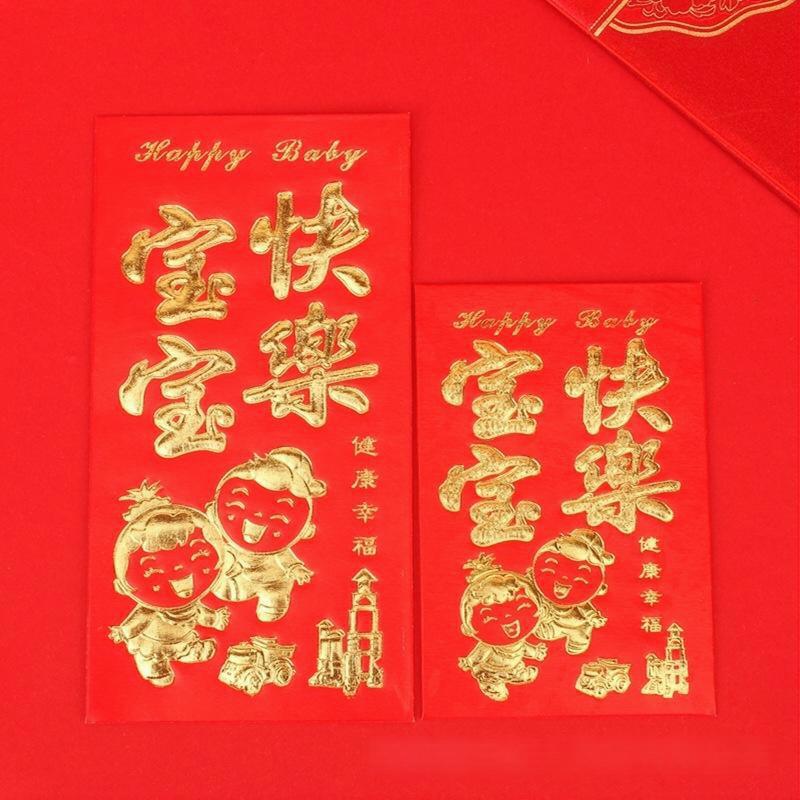 Happy Baby
宝宝
快樂
健康幸福
Happy Baby
宝宝
快樂
健康幸福